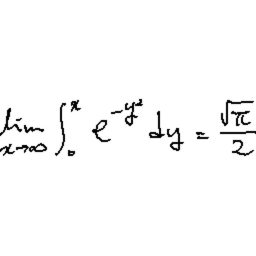 \lim_{x \to \infty} \int_{0}^{x} e^{-y^2} dy = \frac{\sqrt{\pi}}{2}